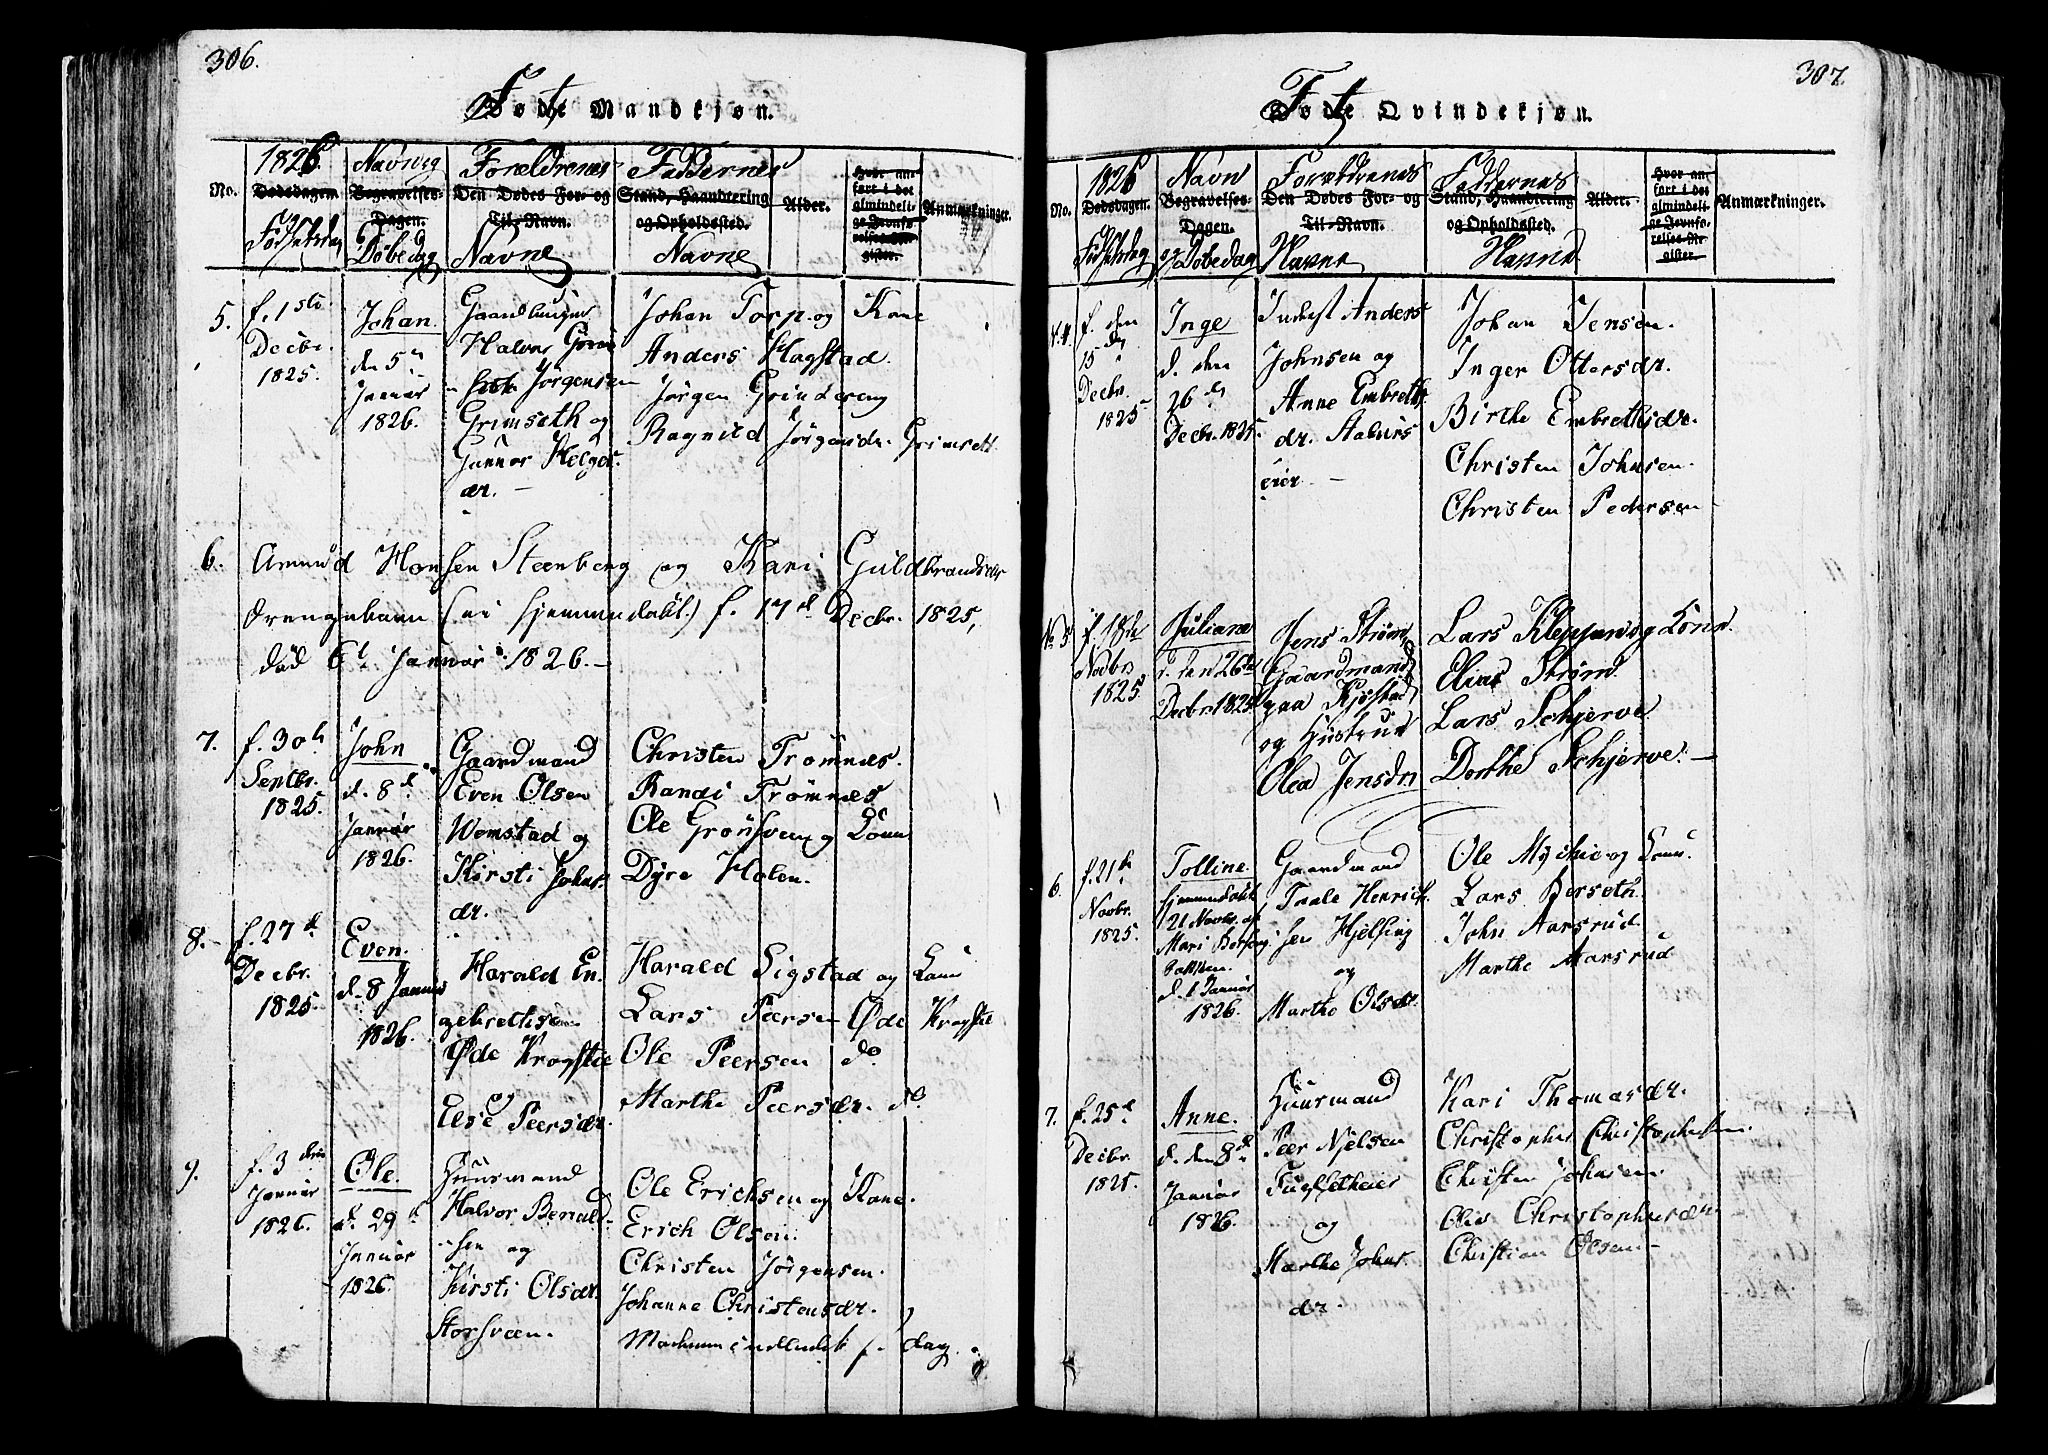 306.
Føde Mandkjøn.
No.
1826
Dødsdagen.
Fødselsdag
Navn og
Begravelses-
Dagen.
Døbedag
Forældrenes
Den Dødes For- og
Til-Navn.
Navne
Faddernes
Stand, Haandtering
og Opholdssted.
Navne
Alder.
Hvor an-
ført i det
almindeli-
ge Jevnfø-
relses-Re-
gister.
Anmærkninger.
5.
f. 1ste
Decbr.
1825.
Johan.
den 5te
Januar
1826.
Halvor
Jørgensen
Grimseth og
Gunnor Helges-
dr.
Johan Torp og Kone
Anders Hagstad.
Jørgen Grindereng
Ragnild Jørgensdr. Grimsett
6.
Amund Hansen Steenberg og Kari Guldbrandsdr
Drengebarn (ei hjemmedøbt) f. 17d Decbr. 1825,
død 6t Januar 1826.
7.
f. 30te
Septbr.
1825.
John
d. 8d
Januar
1826.
Gaardmand
Even Olsen
Wemstad og
Kirsti Johns-
dr.
Christen Trømnes.
Randi Trømnes
Ole Grønsveen og Kone
Dyre Holen.
8.
f. 27d
Decbr.
1825.
Even.
d. 8 Januar
1826.
Harald En-
gebrettsen
Øde Krogstie
og
Else Peersdr.
Harald Sigstad og Kone
Lars Peersen Øde Krogstie
Ole Peersen do
Marthe Peersdr. do
9.
f. 3die
Januar
1826.
Ole.
d. 29d
Januar
1826.
Huusmand
Halvor Berndt-
sen og
Kirsti Olsdr.
Storsveen.
Ole Erichsen og Kone.
Erich Olsen.
Christen Jørgensen.
Johanne Christensdr.
Moderen indledet s. dag.
307.
Føde Qvindekjøn.
No.
1826
Dødsdagen.
Fødselsdag
Navn
Begravelses-
Dagen.
og Døbedag
Forældrenes
Den Dødes For- og
Til-Navn.
Navne
Faddernes
Stand, Haandtering
og Opholdssted.
Navne
Alder.
Hvor an-
ført i det
almindeli-
ge Jevnfø-
relses-Re-
gister.
Anmærkninger.
4.
f. den
15de
Decbr.
1825
Inge
d. den
26de
Decbr. 1825.
Inderst Anders
Johnsen og
Anne Embreths-
dr. Staburs-
eier.
Johan Jensen.
Inger Ottersdr.
Birthe Embrethsdr.
Christen Johnsen.
Christen Pedersen
No 5
f. 18de
Novbr
1825
Juliane
d. den 26de
Decbr 1825
Jens Strøm,
Gaardmand
paa Kjøstad
og Hustrue
Olea Jensdr.
Lars Kleppen og Kone.
Elias Strøm
Lars Schjerve
Dorthe Schjerve.
6.
f. 21de
Novbr.
1825.
Tolline.
hjemmedøbt
21 Novbr. af
Mari Berseng
d. 1 Januar
1826.
Gaardmand
Taale Henrik-
sen Hjelsing
og
Marthe Olsdr.
Ole Myhre og Kone.
Lars Berseth.
John Aarsrud
Marthe Aarsrud
7.
f. 25d
Decbr.
1825.
Anne.
d. den 8de
Januar
1826.
Huusmand
Peer Njelsen
Fuglsetheier
og
Marthe Johns-
dr.
Kari Thomasdr.
Christopher Christophersen.
Christen Johnsen.
Olia Christophersdr.
Christian Olsen